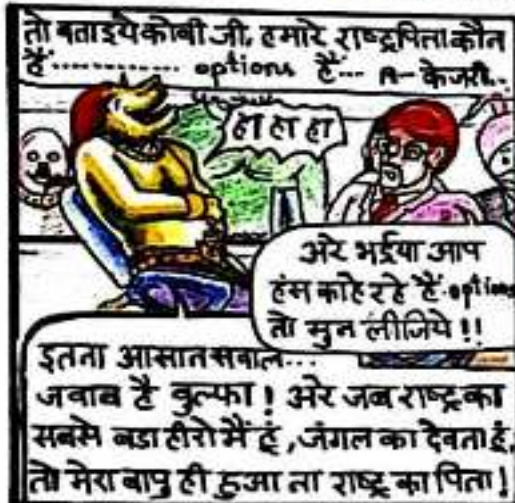 तो बताइये कोबी जी, हमारे राष्ट्रपिता कौन
हैं............. options हैं... A- केजरी..
हा हा हा
अरे भईया आप
हंस काहे रहे हैं. options
तो सुन लीजिये !!
इतना आसान सवाल...
जवाब है वुल्फा ! अरे जब राष्ट्र का
सबसे बडा हीरो मैं हूं, जंगल का देवता हूं,
तो मेरा बापु ही हुआ ना राष्ट्र का पिता !